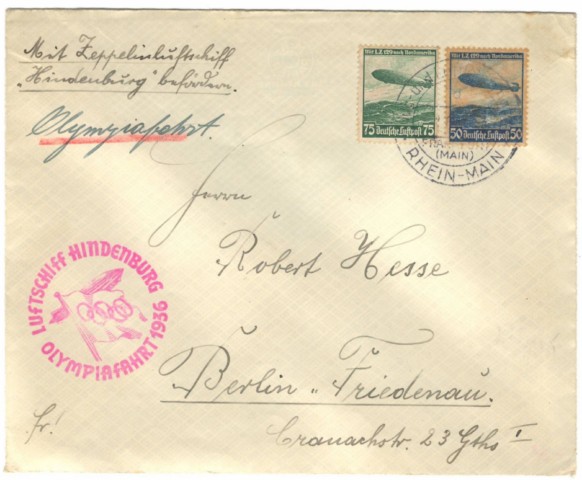 Mit Zeppelinluftschiff
"Hindenburg" befördern.
Olympiafahrt.
Mit L.Z. 129 nach Nordamerika
75 Deutsche Luftpost 75
Mit L.Z. 129 nach Nordamerika
50 Deutsche Luftpost 50
(MAIN)
RHEIN-MAIN
Herrn
Robert Hesse
LUFTSCHIFF HINDENBURG
OLYMPIAFAHRT 1936
Berlin-Friedenau.
Cranachstr. 23 Gths I